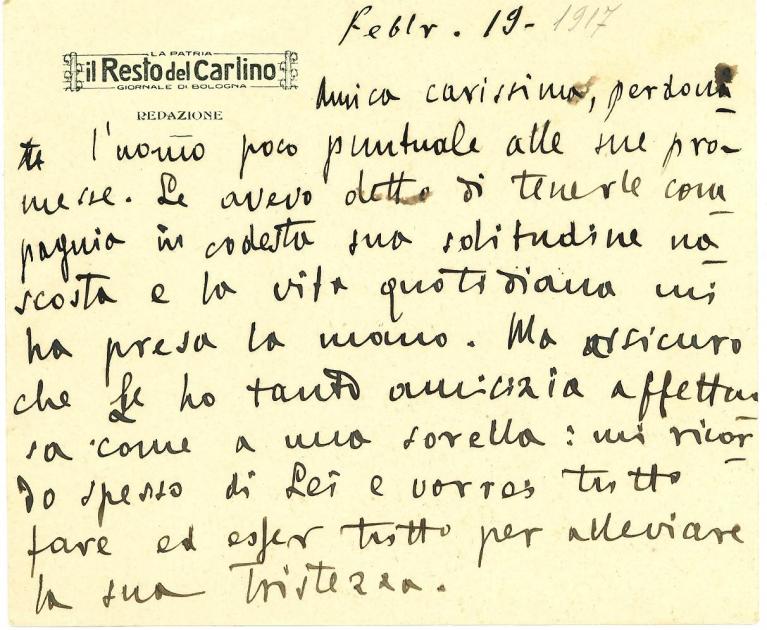 Febbr. 19 - 1917
LA PATRIA
il Resto del Carlino
GIORNALE DI BOLOGNA
REDAZIONE
Amica carissima, perdona
te l'uomo poco puntuale alle sue pro-
messe. Le avevo detto di tenerle com
pagnia in codesta sua solitudine na
scosta e la vita quotidiana mi
ha presa la mano. Ma assicuro
che Le ho tanto amicizia affettuo
sa come a una sorella: mi ricor
do spesso di Lei e vorrei tutto
fare ed esser tutto per alleviare
la sua tristezza.